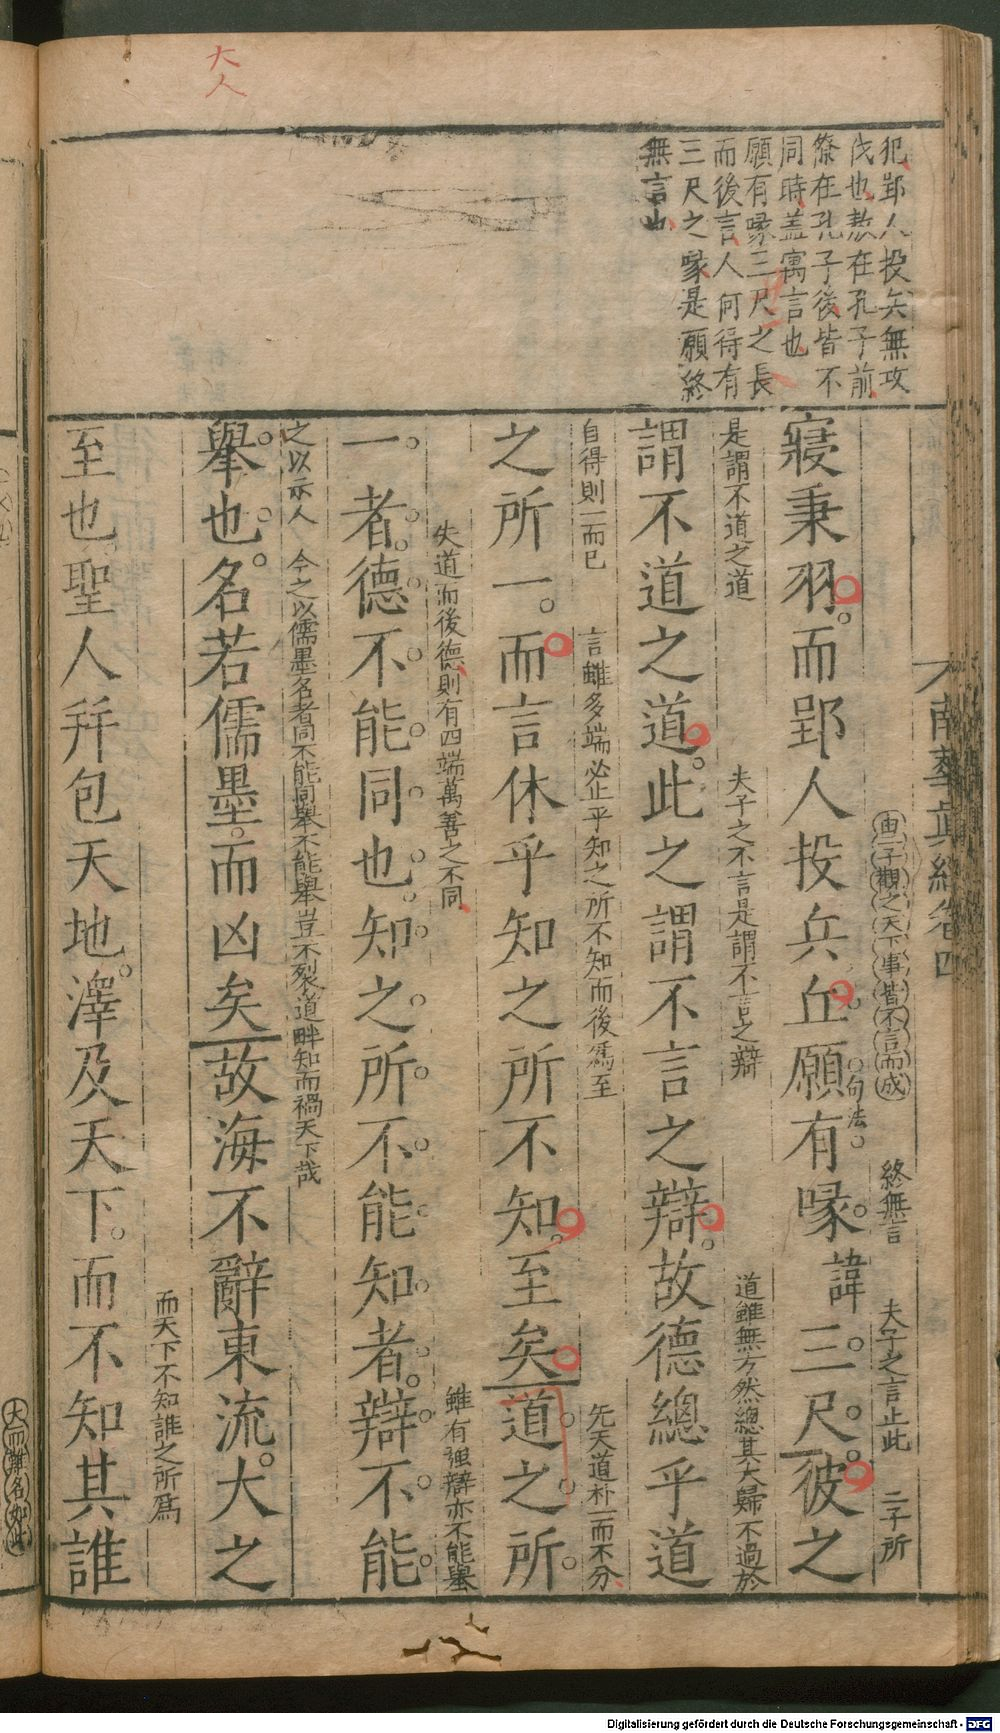 大人
犯郢人投兵無攻
伐也敖在孔子前
僚在孔子後皆不
同時盖寓言也
願有喙三尺之長
而後言人何得有
三尺之喙是願終
無言也
南華真經卷四
由二子觀之天下事皆不言而成
終無言
夫子之言止此
二子所
寢秉羽而郢人投兵丘願有喙諱三尺彼之
句法
是謂不道之道
夫子之不言是謂不言之辯
道雖無方然總其大歸不過於
謂不道之道此之謂不言之辯故德總乎道
自得則一而已
言雖多端必止乎知之所不知而後爲至
先天道朴一而不分
之所一而言休乎知之所不知至矣道之所
失道而後德則有四端萬善之不同
雖有強辯亦不能舉
一者德不能同也知之所不能知者辯不能
之以示人
今之以儒墨名者同不能同舉不能舉豈不裂道畔知而禍天下哉
舉也名若儒墨而凶矣故海不辭東流大之
而天下不知誰之所爲
至也聖人并包天地澤及天下而不知其誰
大而無名如此
Digitalisierung gefördert durch die Deutsche Forschungsgemeinschaft - DFG